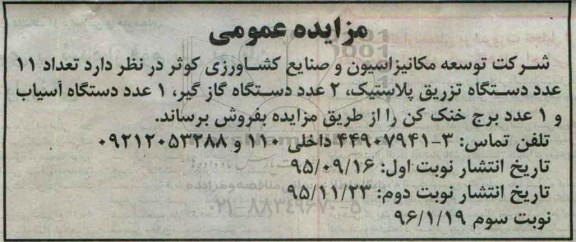 مزایده عمومی
شرکت توسعه مکانیزاسیون و صنایع کشاورزی کوثر در نظر دارد تعداد ۱۱
عدد دستگاه تزریق پلاستیک، ۲ عدد دستگاه گاز گیر، ۱ عدد دستگاه آسیاب
و ۱ عدد برج خنک کن را از طریق مزایده بفروش برساند.
تلفن تماس: ۳-۴۴۹۰۷۹۴۱ داخلی ۱۱۰ و ۰۹۲۱۲۰۵۳۲۸۸
تاریخ انتشار نوبت اول: ۹۵/۰۹/۱۶
تاریخ انتشار نوبت دوم: ۹۵/۱۱/۲۳
نوبت سوم ۹۶/۱/۱۹